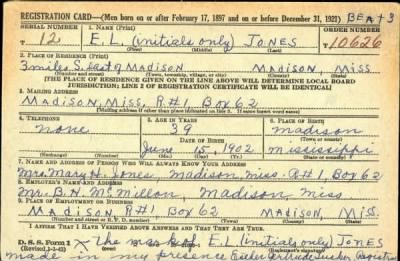 REGISTRATION CARD—(Men born on or after February 17, 1897 and on or before December 31, 1921) BEAT 3
SERIAL NUMBER 1. NAME (Print) ORDER NUMBER
12 E. L. (initials only) JONES 10626
(First) (Middle) (Last)
2. PLACE OF RESIDENCE (Print)
3 miles S. East of Madison Madison, Miss
(Number and street) (Town, township, village, or city) (County) (State)
[THE PLACE OF RESIDENCE GIVEN ON THE LINE ABOVE WILL DETERMINE LOCAL BOARD
JURISDICTION; LINE 2 OF REGISTRATION CERTIFICATE WILL BE IDENTICAL]
3. MAILING ADDRESS
Madison, Miss, R#1, Box 62
[Mailing address if other than place indicated on line 2. If same insert word same]
4. TELEPHONE 5. AGE IN YEARS 6. PLACE OF BIRTH
none 39 Madison
DATE OF BIRTH (Town or county)
June 15, 1902 Mississippi
(Exchange) (Number) (Mo.) (Day) (Yr.) (State or country)
7. NAME AND ADDRESS OF PERSON WHO WILL ALWAYS KNOW YOUR ADDRESS
Mrs. Mary H. Jones, Madison, Miss. R#1, Box 62
8. EMPLOYER'S NAME AND ADDRESS
Mr. B. H. McMillon, Madison, Miss
9. PLACE OF EMPLOYMENT OR BUSINESS
Madison R#1, Box 62 Madison, Miss.
(Number and street or R. F. D. number) (Town) (County) (State)
I AFFIRM THAT I HAVE VERIFIED ABOVE ANSWERS AND THAT THEY ARE TRUE.
D. S. S. Form X the mark of E. L. (initials only) JONES
(Revised 1-1-42)
made in my presence Gertrude Registrar